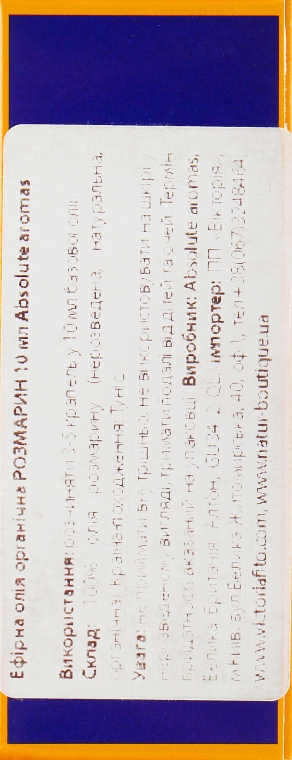 Ефірна олія органічна РОЗМАРИН 10 мл Absolute aromas
Використання: розчиняти 3-5 крапель у 10 мл базової олії
Склад: 100% олія розмарину (нерозведена, натуральна,
органічна). Країна походження: Туніс.
Увага: не приймати внутрішньо, не використовувати на шкірі у
нерозведеному вигляді, тримати подалі від дітей та очей. Термін
придатності вказаний на упаковці. Виробник: Absolute aromas,
Велика Британія, Алтон, GU34 2QL. Імпортер: ПП «Вікторія»,
м.Київ, вул.Велика Житомирська, 40, оф.1, тел.+38(067)3248464
www.victoriafito.com, www.natur-boutique.ua